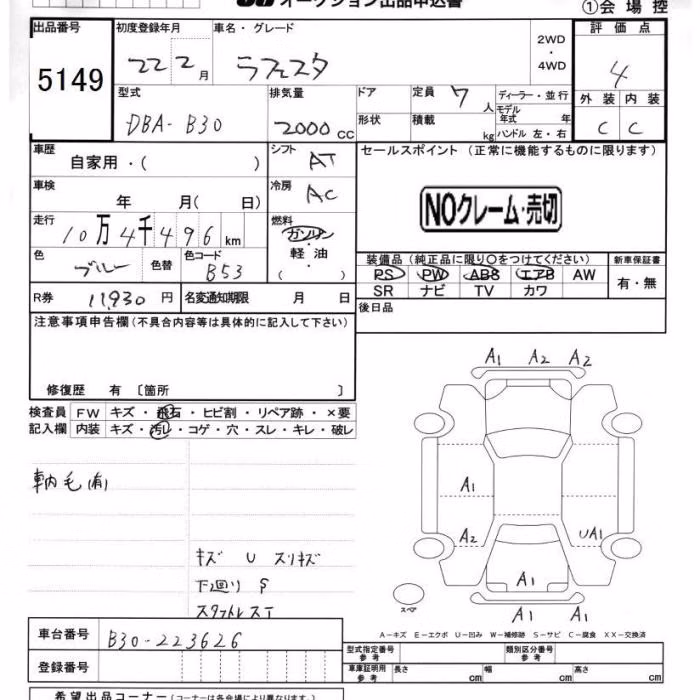 オークション出品申込書
①会場控
出品番号 初度登録年月 車名・グレード 評価点
5149 22 2月 ラフェスタ 2WD・4WD 4
型式 排気量 ドア 定員 7人 ディーラー・並行 外装 内装
DBA-B30 2000cc 形状 積載 kg モデル年式 年 ハンドル 左・右 C C
車歴 自家用・( ) シフト AT セールスポイント (正常に機能するものに限ります)
車検 年 月( 日) 冷房 AC
NOクレーム・売切
走行 10万4千496km 燃料 ガソリン 軽油 ( )
色 ブルー 色替 色コード B53
装備品(純正品に限り○をつけてください) 新車保証書
PS PW ABS エアB AW 有・無
SR ナビ TV カワ
R券 11,930円 名変通知期限 月 日 後日品
注意事項申告欄(不具合内容等は具体的に記入して下さい)
修復歴 有 〔箇所 〕
検査員 FW キズ・飛石・ヒビ割・リペア跡・×要
記入欄 内装 キズ・汚レ・コゲ・穴・スレ・キレ・破レ
A1 A2 A2
A1
A2 UA1
A1
A1 A1
毛(有)
キズ U スリキズ
下廻り S
スタットレスT
スペア
A-キズ E-エクボ U-凹み W-補修跡 S-サビ C-腐食 XX-交換済
車台番号 B30-223626
登録番号
型式指定番号 参考 類別区分番号 参考
車庫証明用 参考 長さ cm 幅 cm 高さ cm
希望出品コーナー(コーナーは各会場により異なります)